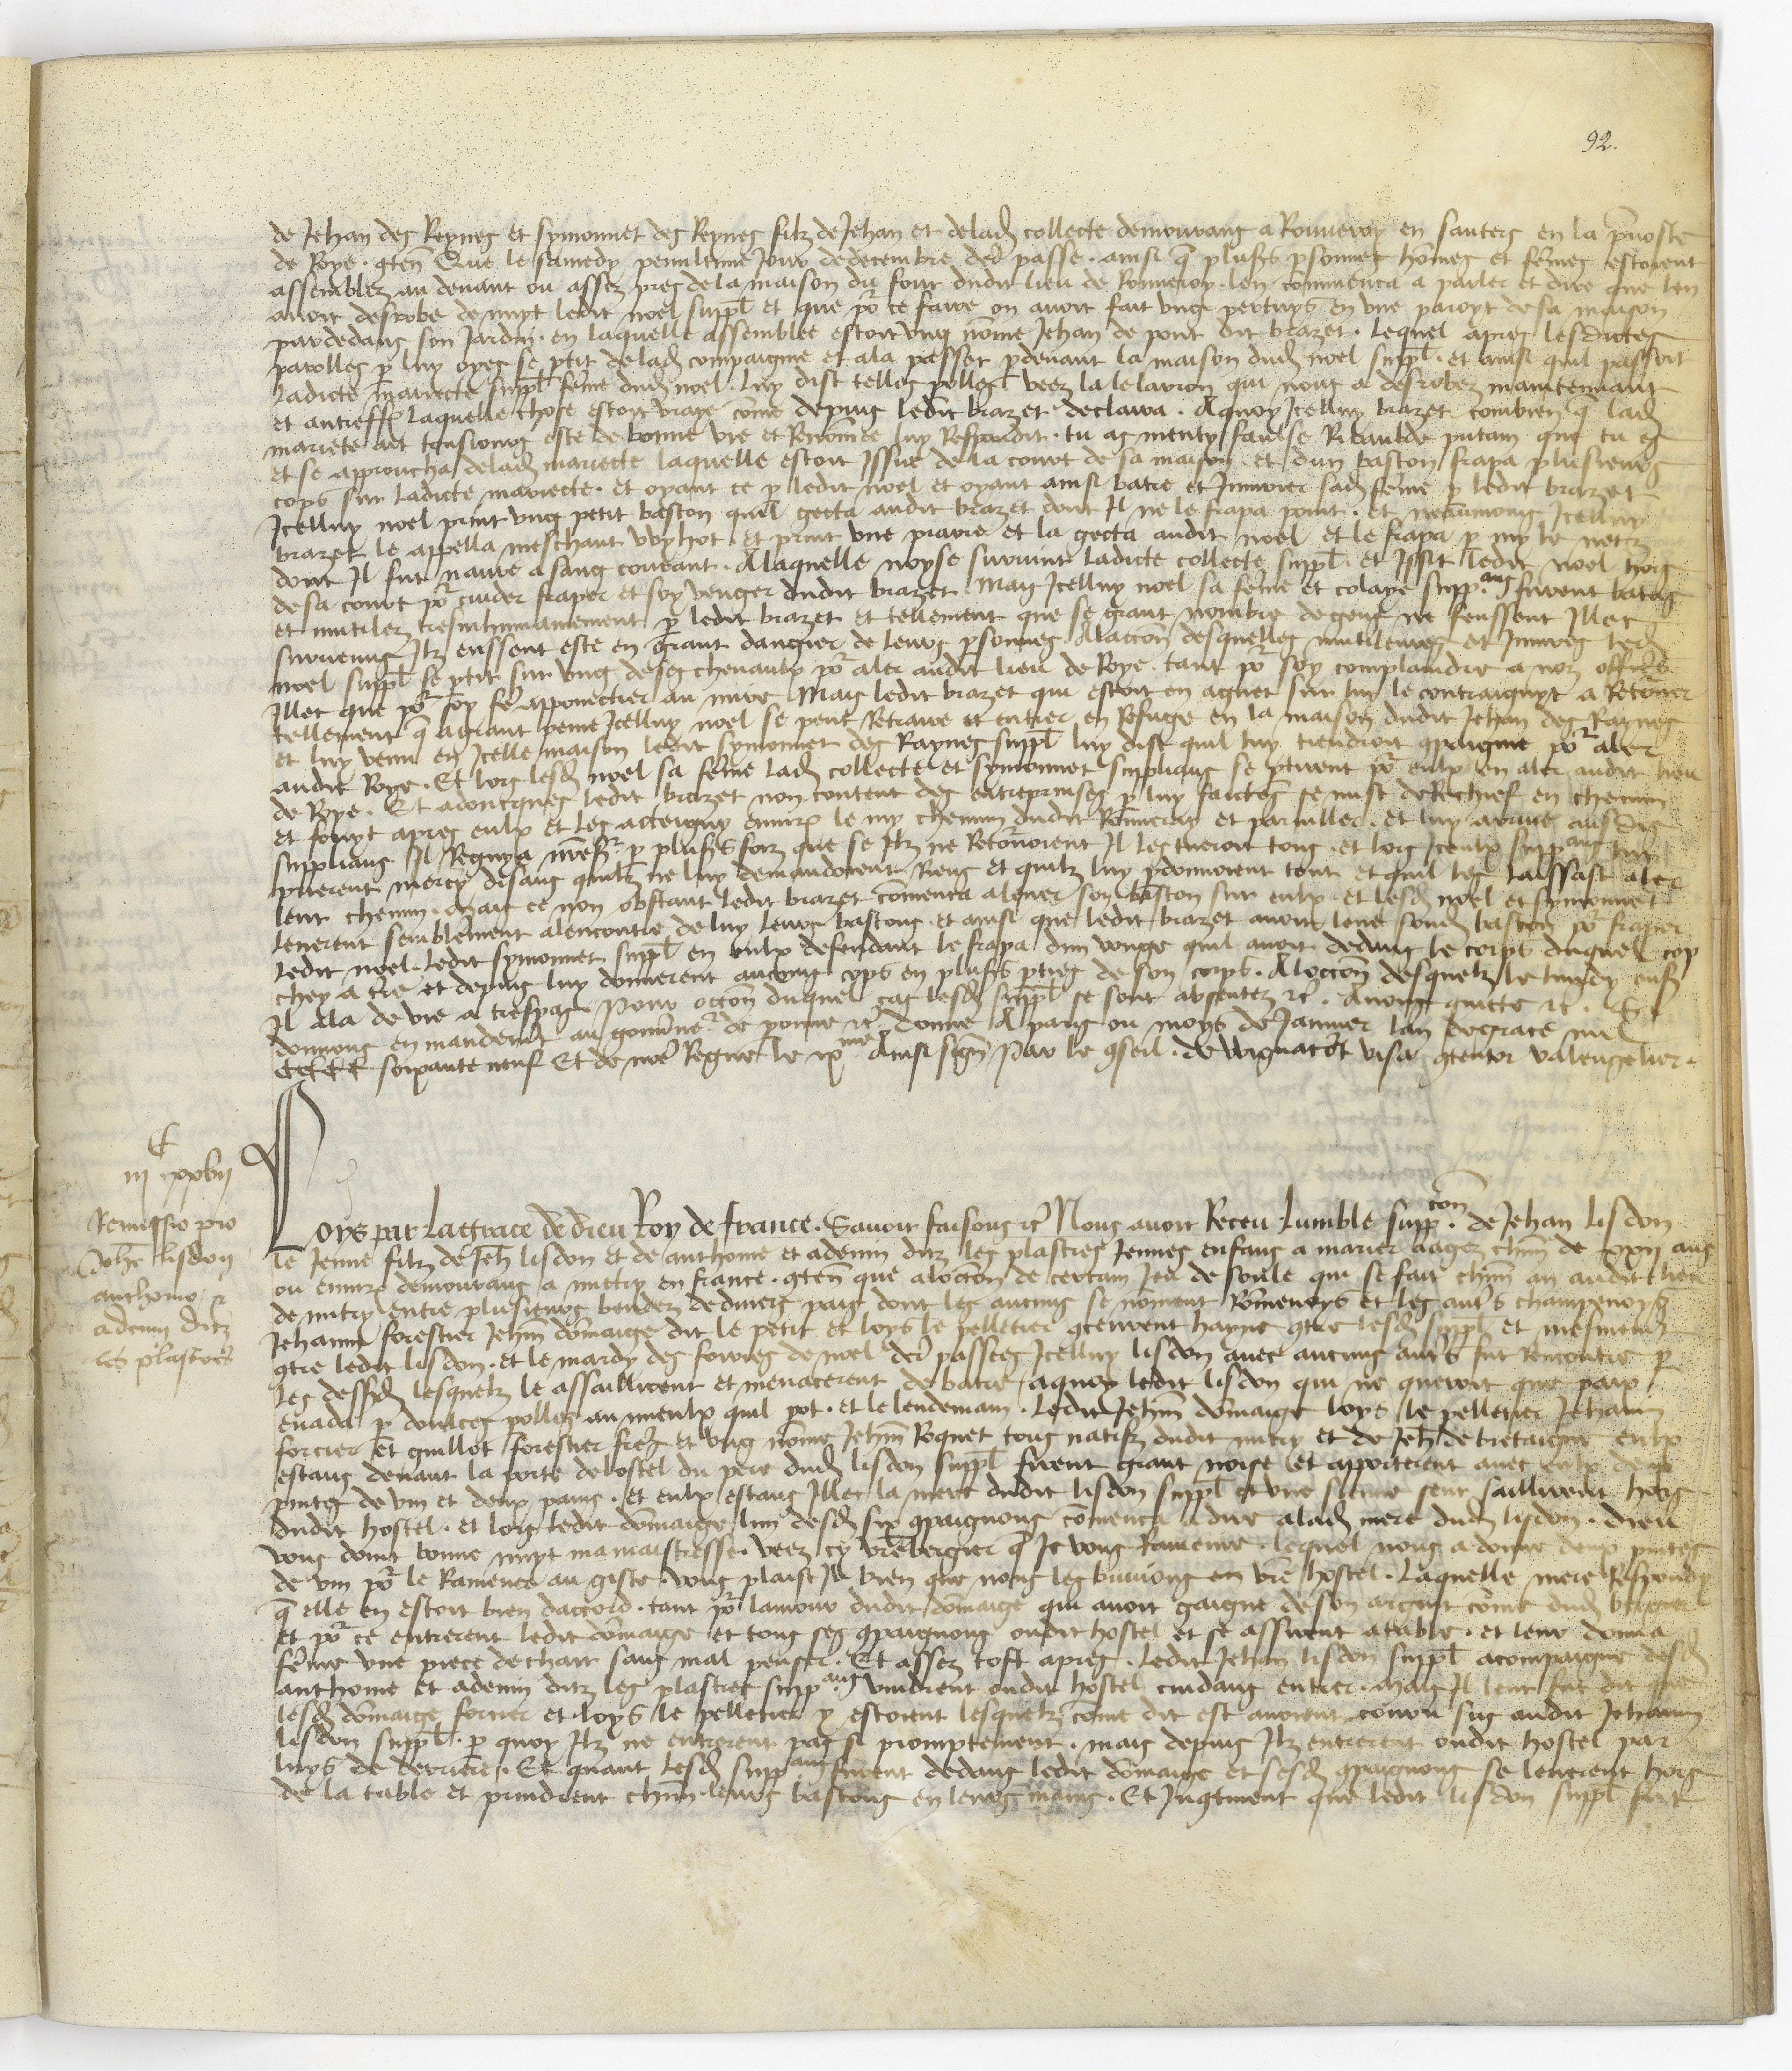 92.
de Jehan des Reynes et symonnet des Reynes filz de Jehan et de lad collecte demourans a Rouveroy en santers en la pvoste
de Roye. gten Que le samedy penultime Jour de decembre derr passe. ainsi q plusrs psonnes homes et femes estoient
assemblez au devant ou assez pres de la maison du four dudit lieu de Rouveroy. len commenca a parler et dire que len
avoit desrobe de nuyt ledit noel suppl et que por ce faire on avoit fait ung pertuys en une paroyt de sa maison
par dedans son Jardin. en laquelle assemblee estoit ung nome Jehan de pont dit brazet. Lequel apres lesdictes
parolles p luy oyes se ptit de lad compaignie et ala passer pdevant la maison dud noel suppl. et ainsi quil passoit
Ladicte mariecte suppl feme dud noel. Luy dist telles polles veez la le larron qui nous a desrobez maintenant
et autreff laquelle chose estoit vraye come depuis ledit brazet declaira. Aquoy Icelluy brazet combien q lad
mariete ait tousjours este de bonne vie et Renomee luy Respondit. tu as menty faulse Ribaulde putain que tu es
et se approucha de lad mariecte laquelle estoit Issue de la court de sa maison. et dun baston frapa plusieurs
cops sur ladicte mariecte. et oyant ce p ledit noel et oyant ainsi batre et Injurier sad feme p ledit brazet
Icelluy noel print ung petit baston quil gecta audit brazet dont Il ne le frapa point. et neaumoins Icelluy
brazet le appella meschant wyhot. et print une pierre et la gecta audit noel et le frapa p my le nez
dont Il fut navre a sang coulant. A laquelle noyse survint ladicte collecte suppl. et Issit ledit noel hors
de sa court por cuider fraper et soy venger dudit brazet. Mais Icelluy noel sa feme et colaye suppans furent batus
et mutilez tresinhumainement p ledit brazet et tellement que se grant nombre de gens ne feussent Illec
survenus Ilz eussent este en grant dangier de leurs psonnes. Aloccon desquelles mutileures et Injures led
noel suppl se ptit sur ung de ses chevaulx por aler audit lieu de Roye. tant por soy complaindre a noz offices
Illec que por soy fe appoinctier au mire Mais ledit brazet qui estoit en aguet sur luy le contraignyt a Retorner
tellement q a grant peine Icelluy noel se peut Retraire et entrer en Refuge en la maison dudit Jehan des Raynes
et luy venu en Icelle maison ledit symonnet des Raynes suppl luy dist quil luy tiendroit gpaignie por aler
audit Roye. Et lors lesd noel sa feme lad collecte et symonnet supplians se ptirent por eulx en aler audit lieu
de Roye. Et adoncques ledit brazet non content des entreprinses p luy faictes se mist de Rechief en chemin
et fouyt apres eulx et les acceigny envir le my chemin dudit Rouveroy et parviller. et luy arrive ausdis
supplians Il Regnya nresr p plusrs foiz que se Ilz ne Retornoient Il les tueroit tous. et lors Iceulx suppans luy
prierent mercy disans quilz ne luy demandoient Riens et quilz luy pdonnoient tout et quil les laissast aler
leur chemin. Mais ce non obstant ledit brazet comenca alever son baston sur eulx. et lesd noel et symonnet
Leverent semblement alencontre de luy leurs bastons. et ainsi que ledit brazet avoit leve sond baston por fraper
ledit noel. Ledit symonnet suppl en eulx defendant le frapa dun vouge quil avoit dedans le corps duquel cop
chey a tre et depuis luy donnerent aucuns cops en plusrs pties de son corps. Aloccon desquelz le lundy ensr
Il ala de vie a trespas. Pour occon duquel cas lesd suppl se sont absentez etc. Avons quicte etc. Et
donnons en mandemt au gouvner de peronne etc. donne A paris ou moys de Janvier lan de grace mil
CCCC soixante neuf Et de nre Regne le ixme Ainsi sign Par le gseil. de wignacort visa gtentor valengelier.

C
iij xxvij
Remissio pro
Johe lisdon
anthome et
adenin ditz
les plastres

Loys par la grace de dieu Roy de france. Savoir faisons etc Nous avoir Receu Lumble suppcon. de Jehan lisdon
le Jenne filz de Jeh lisdon et de anthome et adenin ditz les plastres Jennes enfans a marier aagez chun de xxij ans
ou envir demourans a mictry en france. gten que a loccon de certain Jeu de soule qui se fait chun an audit lieu
de mitry entre plusieurs bendez de divers pais dont les aucuns se noment Romenoys et les autrs champenoys
Jehanin forestier Jehin domaige dit le petit et loys le pelletier gceurent hayne gtre lesd suppl et mesmemt
gtre ledit lisdon. et le mardy des foiries de noel derr passees Icelluy lisdon avec aucuns autrs fut Rencontre p
Les dessusd lesquelz le assaillirent et menacerent de batre aquoy ledit lisdon qui ne queroit que paix
evada p doulces polles au mieulx quil pot. et le lendemain. Ledit Jehin domaige loys le pelletier Jehanin
forcier et guillot forestier freres et ung nome Jehin Roquet tous natifz dudit mitry et de Jeh de bretaigne eulx
estans devant la porte de lostel du pere dud lisdon suppl firent grant noise et apporterent avec eulx deux
pintes de vin et deux pains. et eulx estans Illec la mere dudit lisdon suppl et une sienne seur saillirent hors
dudit hostel. et lors ledit domaige lun desd six gpaignons comenca a dire alad mere dud lisdon. dieu
vous doint bonne nuyt ma maistresse. veez cy vre bergier q Je vous Rameine. lequel nous a donne deux pintes
de vin por le Ramener au giste. vous plaist Il bien que nous les buvions en vre hostel. Laquelle mere Respondy
q elle en estoit bien daccord. tant por lamour dudit domaige qui avoit gaigne de son argent come dud bergier
et por ce entrerent ledit domaige et tous ses gpaignons oudit hostel et se assirent a table. et leur donna
feme une piece de chair sans mal penser. Et assez tost apres. Ledit Jehan lisdon suppl acompaigne desd
anthome et adenin ditz les plastres suppans vindrent oudit hostel cuidans entrer. Mais Il leur fut dit que
lesd domaige forcier et loys le pelletier y estoient lesquelz come dit est avoient couru sus audit Jehanin
lisdon suppl. p quoy Ilz ne entrerent pas si promptement. mais depuis Ilz entrerent oudit hostel par
luys de derriere. Et quant lesd suppans furent dedans ledit domaige et sesd gpaignons se leverent hors
de la table et prindrent chun leurs bastons en leurs mains. Et Inctinent que ledit lisdon suppl fut